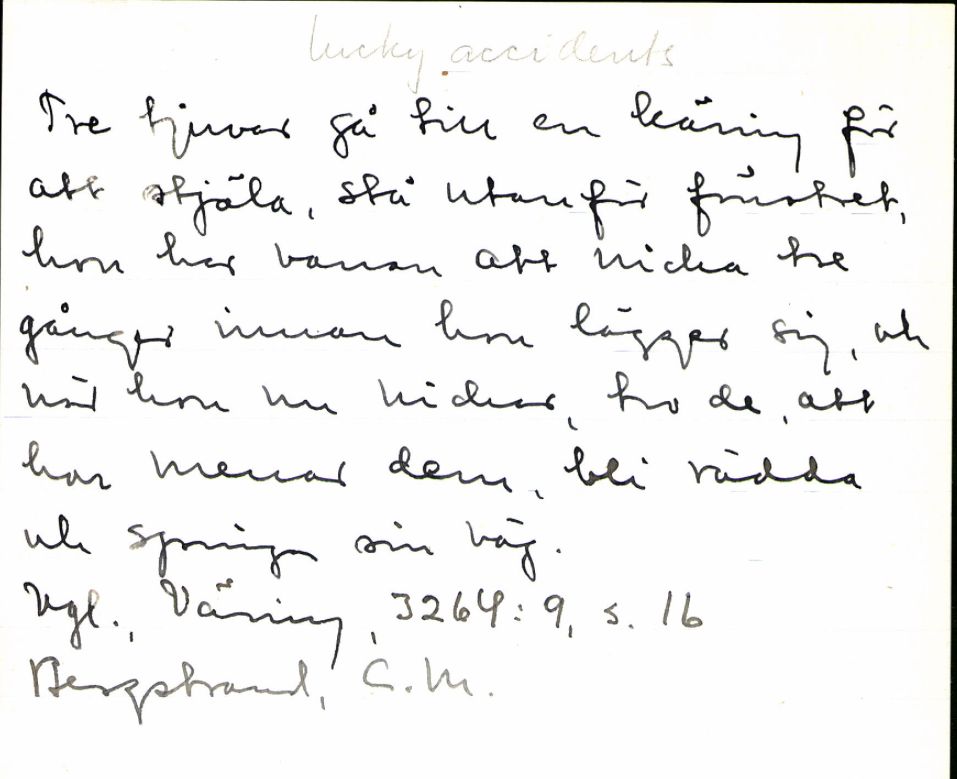 lucky accidents
Tre tjuvar gå till en käring för
att stjäla, stå utanför fönstret,
hon har vanan att nicka tre
gånger innan hon lägger sig, och
när hon nu nickar, tro de, att
hon menar dem, bli rädda
och springa sin väg.
Vgl., Väring, 3264:9, s. 16
Bergstrand, C.M.